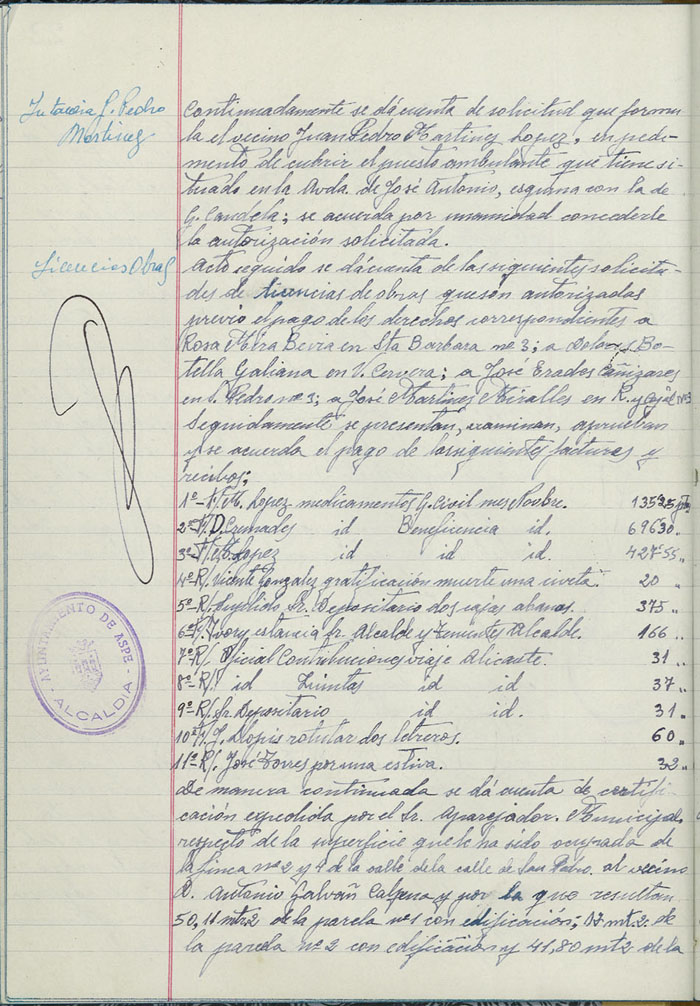 Instancia J. Pedro
Martinez
Continuadamente se dá cuenta de solicitud que formu
la el vecino Juan Pedro Martinez Lopez, en pedi-
mento de cubrir el puesto ambulante que tiene si-
tuado en la Avda. de José Antonio, esquina con la de
G. Candela; se acuerda por unanimidad concederle
la autorización solicitada.
Licencias Obras
Acto seguido se dá cuenta de las siguientes solicitu-
des de licencias de obras que són autorizadas
previo el pago de los derechos correspondientes a
Rosa Mira Bevia en Sta Barbara nº 3; a Dolores Bo-
tella Galiana en V. Cervera; a José Erades Cañizares
en S. Pedro nº 3; a José Martinez Miralles en R. y Cajal nº 3
Seguidamente se presentan, examinan, aprueban
y se acuerda el pago de las siguientes facturas y
recibos;
1º-F/ M. Lopez medicamentos G. Civil mes Novbre. 135'25 ptas
2º-F/ D. Cremades id Beneficencia id. 696'30 "
3º-F/ Lopez id id id. 427'55 "
4º-R/ Vicente Gonzalez gratificación muerte una 20 "
5º-R/ Sr. Depositario dos cajas 375 "
6º-F/ Ivory estancia Sr. Alcalde y Tenientes Alcalde. 166 "
7º-R/ Oficial Contribuciones viaje Alicante. 31 "
8º-R/ id Quintas id id 37 "
9º-R/ Sr. Depositario id id. 31 "
10º-F/ J. Llopis rotular dos letreros. 60 "
11º-R/. José Torres por una estiva. 32 "
AYUNTAMIENTO DE ASPE - ALCALDIA -
De manera continuada se dá cuenta de certifi-
cación expedida por el Sr. Aparejador Municipal,
respecto de la superficie que le ha sido ocupada de
la finca nº 2 y 4 de la calle de la calle de San Pedro al vecino
D. Antonio Galvañ Calpena y por la que resultan
50,11 mtr2 de la parcela nº 1 con edificación; 17 mt2. de
la parcela nº 2 con edificación y 41,80 mt2 de la